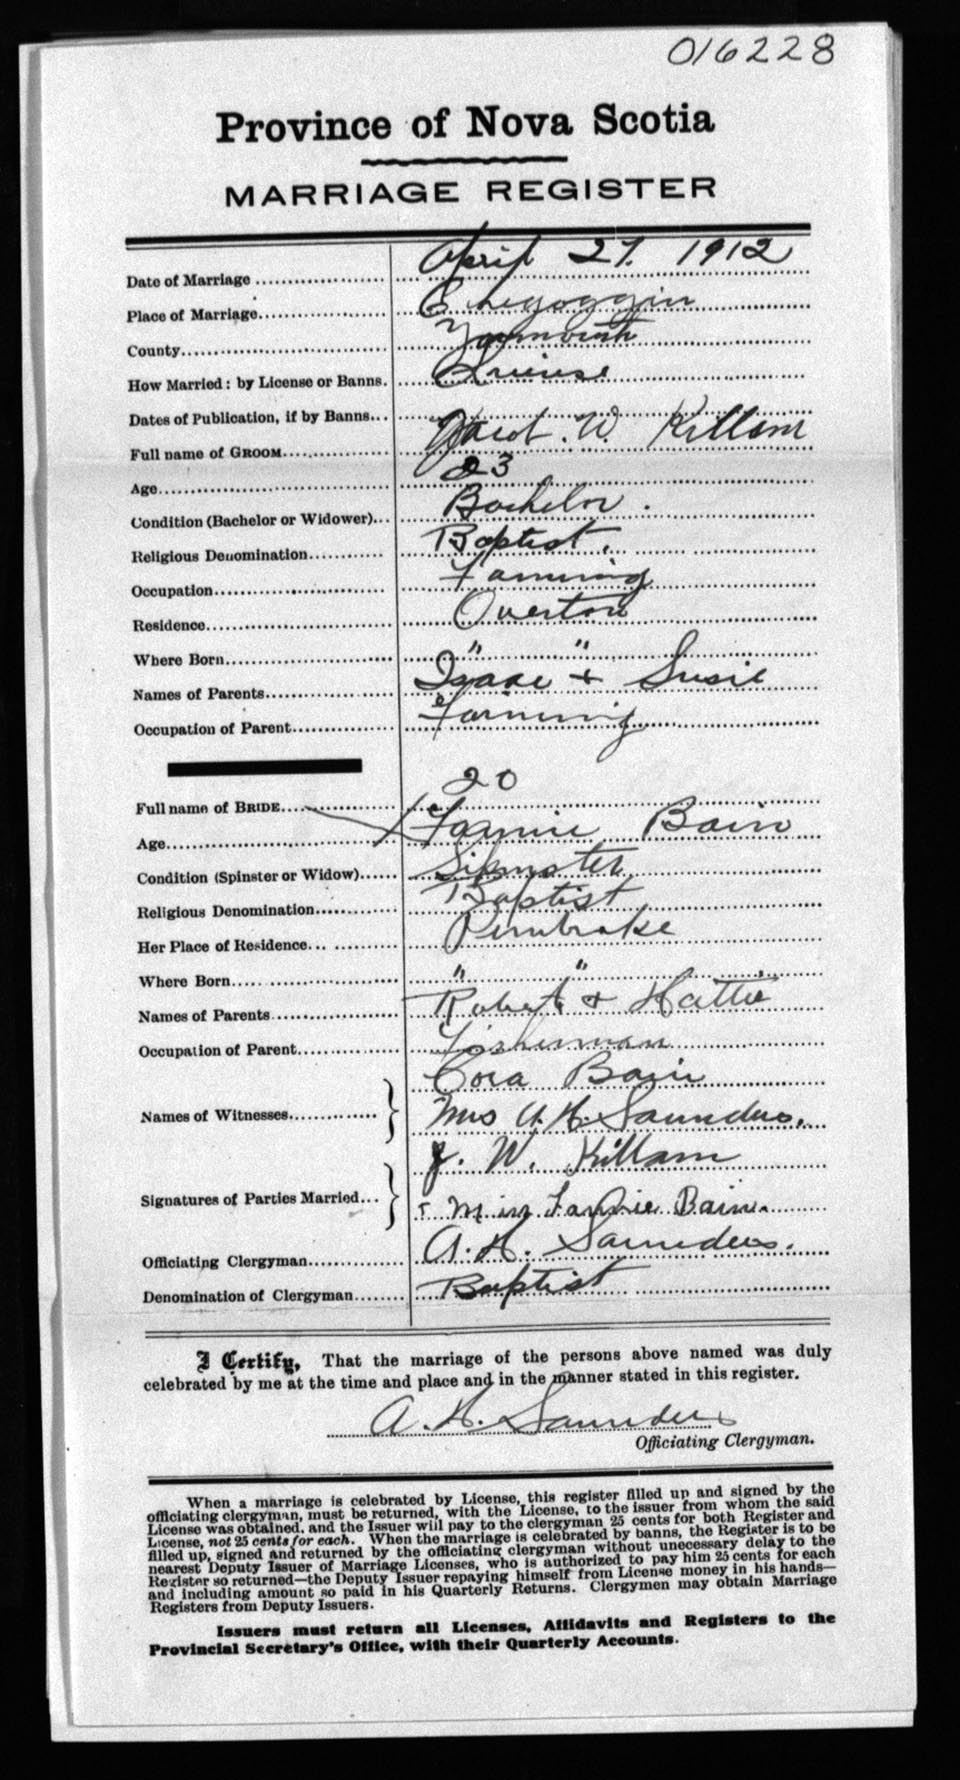 016228
Province of Nova Scotia
MARRIAGE REGISTER
Date of Marriage April 27. 1912
Place of Marriage Chegoggin
County Yarmouth
How Married: by License or Banns.
Dates of Publication, if by Banns
Full name of GROOM W. Killam
Age 23
Condition (Bachelor or Widower) Bachelor.
Religious Denomination Baptist.
Occupation Farming
Residence Overton
Where Born " "
Names of Parents Isaac + Susie
Occupation of Parent Farming
20
Full name of BRIDE
Age Fannie Bain
Condition (Spinster or Widow)
Religious Denomination Baptist
Her Place of Residence Pembroke
Where Born " "
Names of Parents Robert + Hattie
Occupation of Parent Fisherman
Cora Bain
Names of Witnesses Mrs A. H. Saunders.
J. W. Killam
Signatures of Parties Married Miss Fannie Bain.
Officiating Clergyman A. H. Saunders.
Denomination of Clergyman Baptist
I Certify, That the marriage of the persons above named was duly
celebrated by me at the time and place and in the manner stated in this register.
A. H. Saunders
Officiating Clergyman.
When a marriage is celebrated by License, this register filled up and signed by the
officiating clergyman, must be returned, with the License, to the issuer from whom the said
License was obtained, and the Issuer will pay to the clergyman 25 cents for both Register and
License, not 25 cents for each. When the marriage is celebrated by banns, the Register is to be
filled up, signed and returned by the officiating clergyman without unecessary delay to the
nearest Deputy Issuer of Marriage Licenses, who is authorized to pay him 25 cents for each
Register so returned—the Deputy Issuer repaying himself from License money in his hands—
and including amount so paid in his Quarterly Returns. Clergymen may obtain Marriage
Registers from Deputy Issuers.
Issuers must return all Licenses, Affidavits and Registers to the
Provincial Secretary's Office, with their Quarterly Accounts.